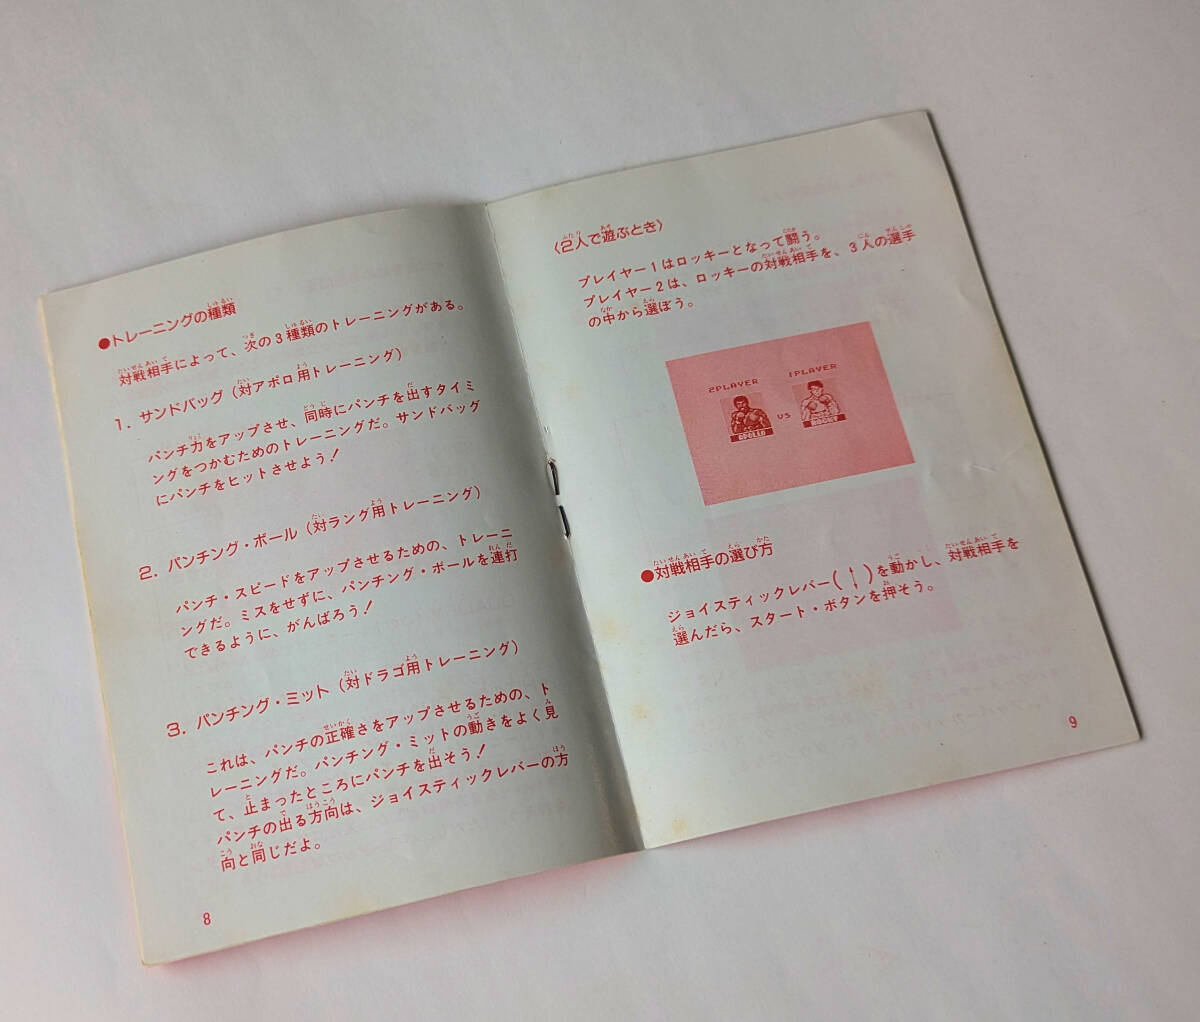 ●トレーニングの種類
対戦相手によって、次の3種類のトレーニングがある。
1. サンドバッグ（対アポロ用トレーニング）
パンチ力をアップさせ、同時にパンチを出すタイミ
ングをつかむためのトレーニングだ。サンドバッグ
にパンチをヒットさせよう！
2. パンチング・ボール（対ラング用トレーニング）
パンチ・スピードをアップさせるための、トレーニ
ングだ。ミスをせずに、パンチング・ボールを連打
できるように、がんばろう！
3. パンチング・ミット（対ドラゴ用トレーニング）
これは、パンチの正確さをアップさせるための、ト
レーニングだ。パンチング・ミットの動きをよく見
て、止まったところにパンチを出そう！
パンチの出る方向は、ジョイスティックレバーの方
向と同じだよ。
8
〈2人で遊ぶとき〉
プレイヤー1はロッキーとなって闘う。
プレイヤー2は、ロッキーの対戦相手を、3人の選手
の中から選ぼう。
2PLAYER
1PLAYER
VS
APOLLO
ROCKY
●対戦相手の選び方
ジョイスティックレバー(↑↓)を動かし、対戦相手を
選んだら、スタート・ボタンを押そう。
9